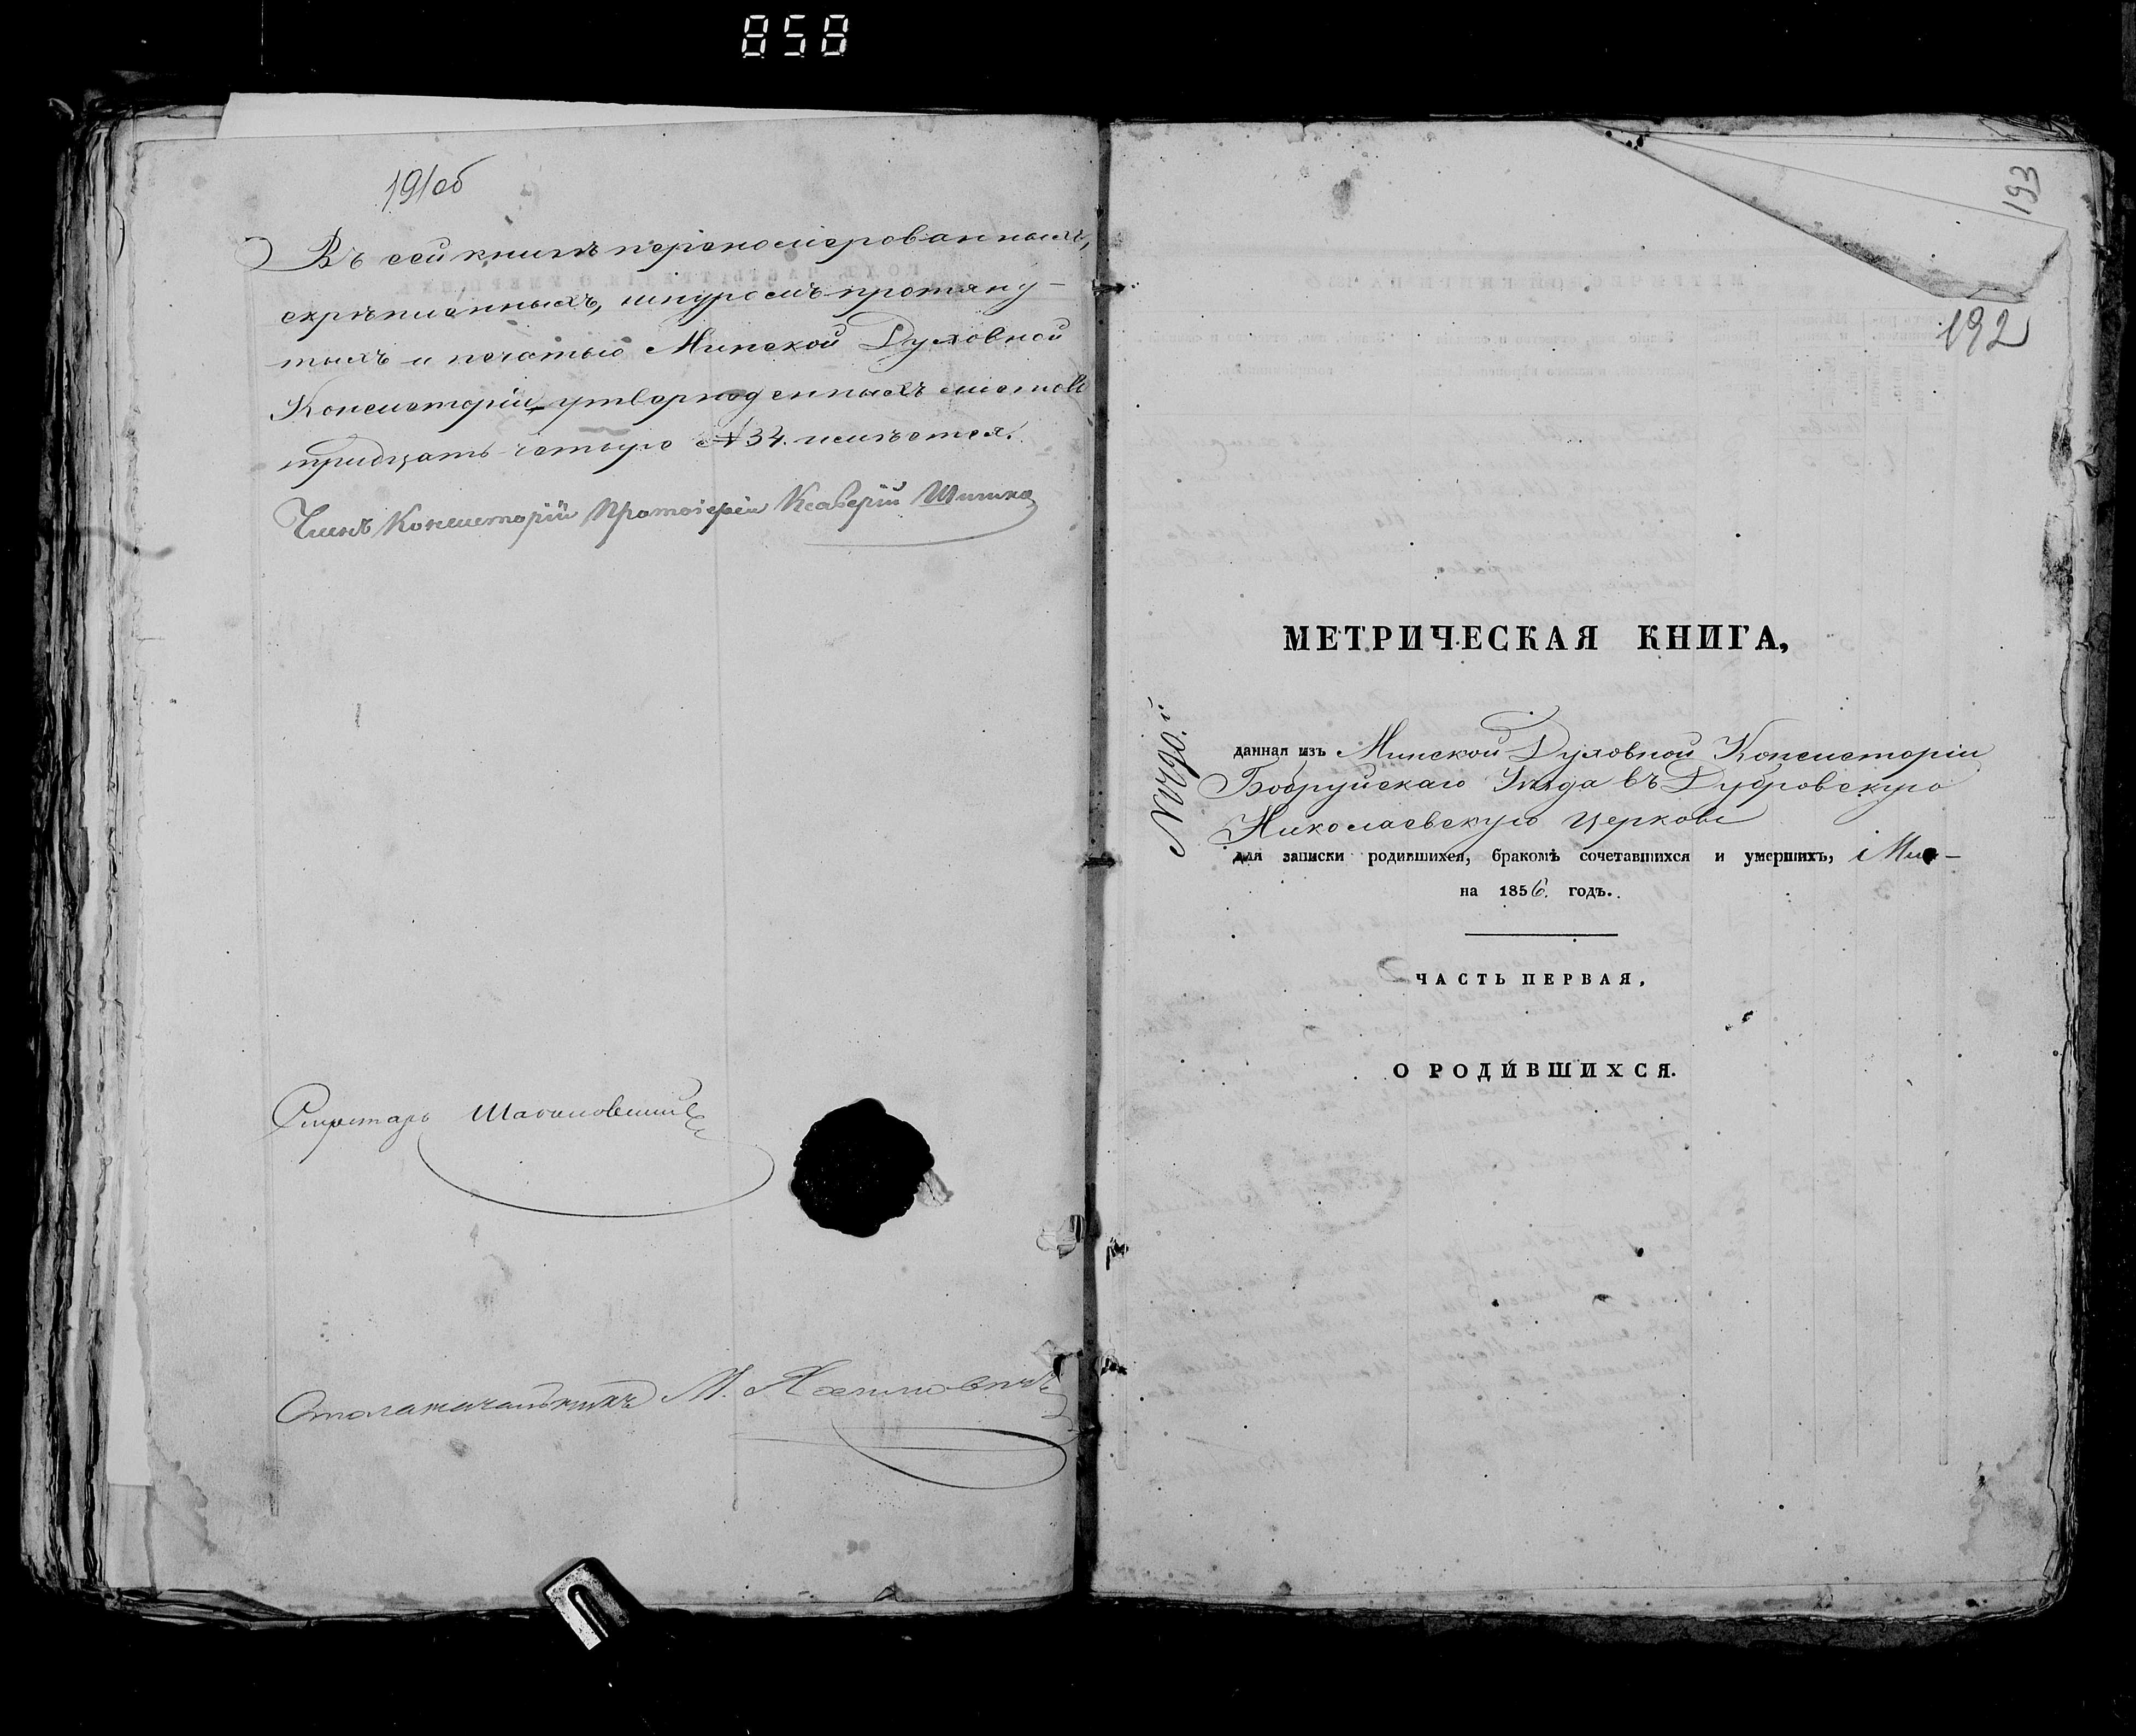 858
191об
Въ сей книгѣ переномерованныхъ,
скрѣпленныхъ, шнуромъ протяну-
тыхъ и печатью Минской Духовной
Консисторіи утвержденныхъ листовъ
тридцать четыре № 34. имѣется.
Членъ Консисторіи Протоіерей Ксаверій
Секретарь
Столоначальникъ М.
193
192
МЕТРИЧЕСКАЯ КНИГА,
данная изъ Минской Духовной Консисторіи
Бобруйскаго Уѣзда въ Дубровскую
Николаевскую церковь
для записки родившихся, бракомъ сочетавшихся и умершихъ,
на 1856. годъ.
ЧАСТЬ ПЕРВАЯ,
О РОДИВШИХСЯ.